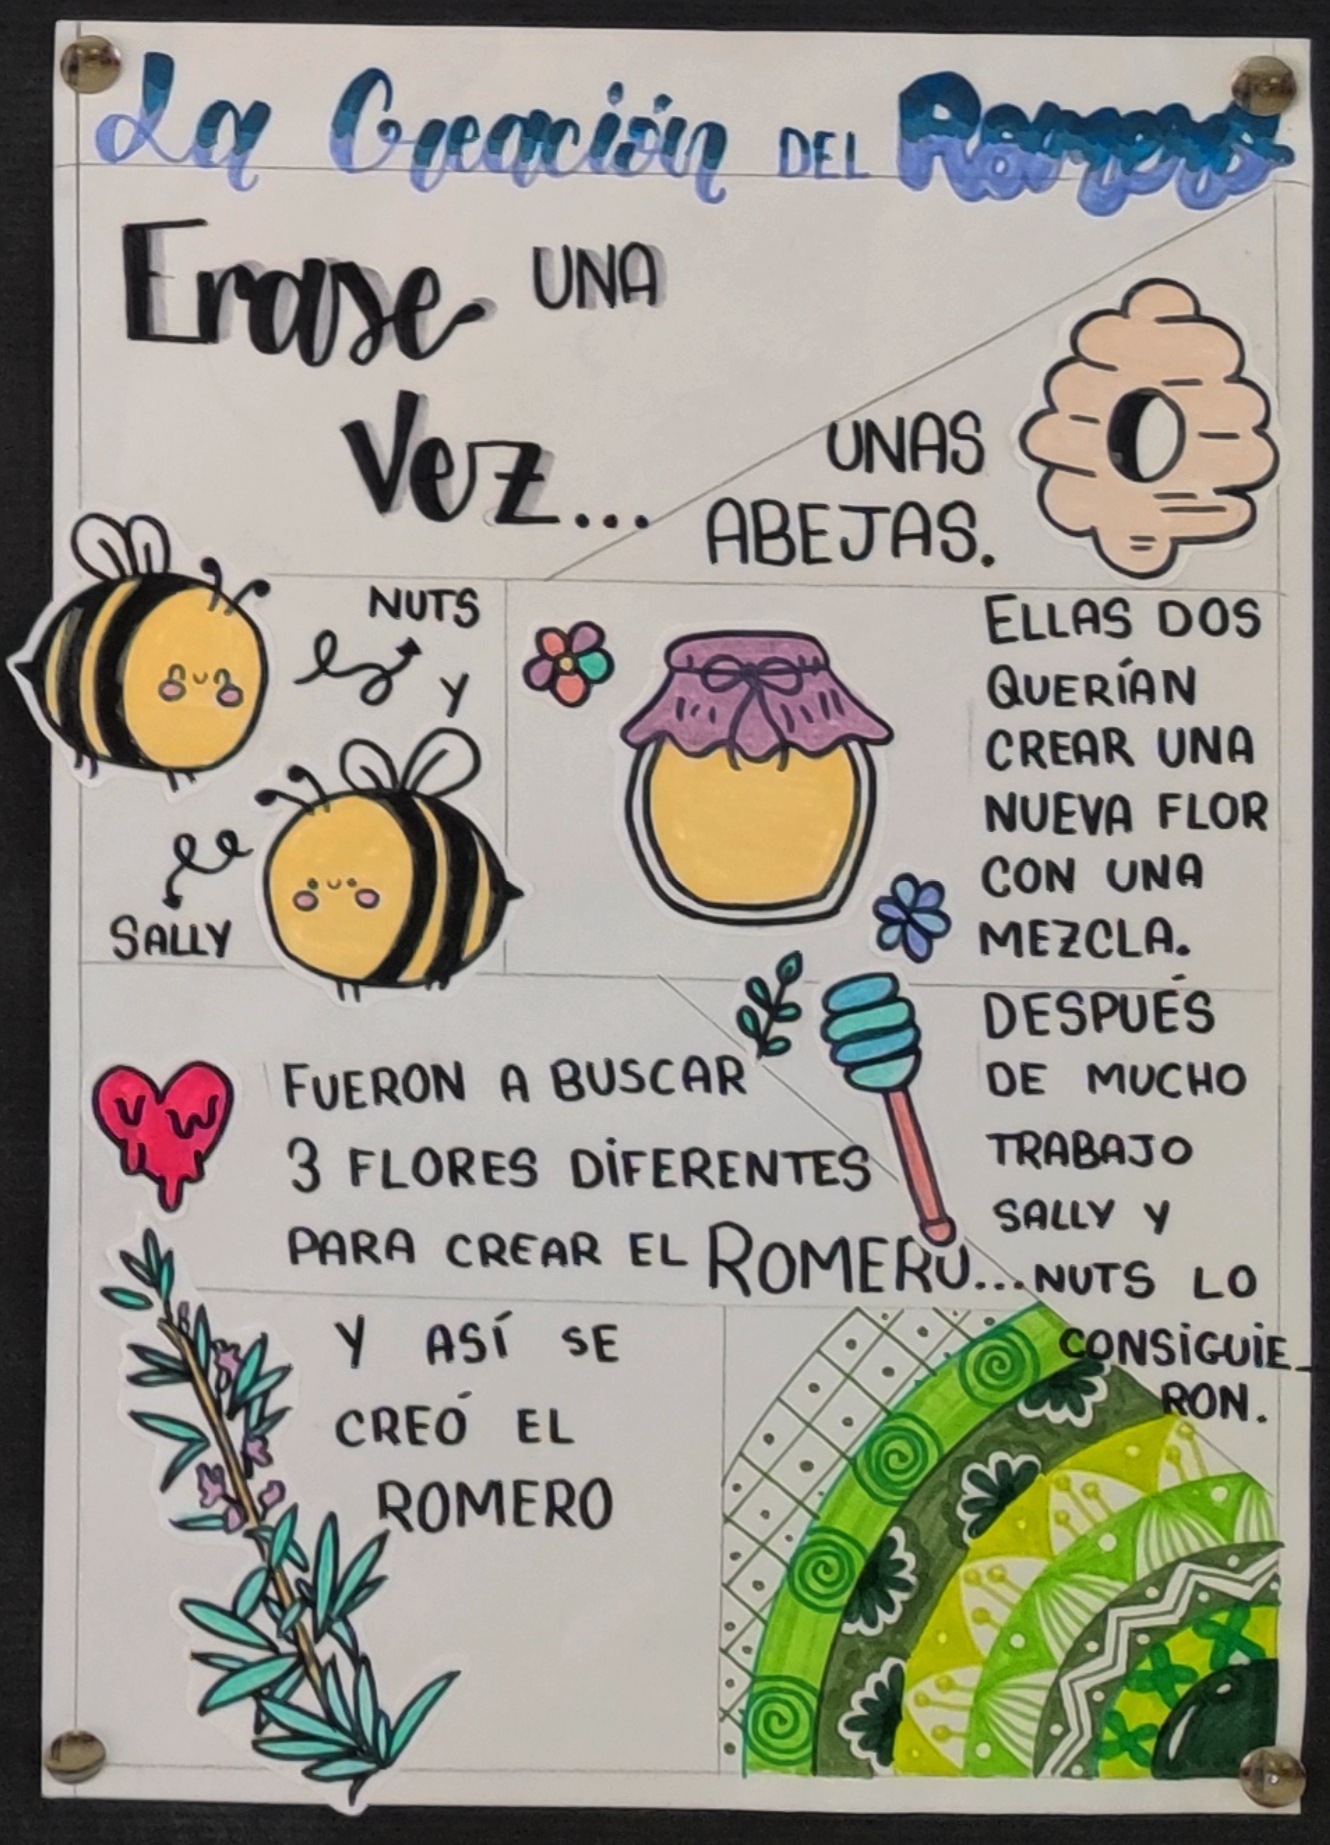 La Creación DEL Romero
Erase UNA
Vez...
UNAS
ABEJAS.
NUTS
Y
SALLY
ELLAS DOS
QUERÍAN
CREAR UNA
NUEVA FLOR
CON UNA
MEZCLA.
FUERON A BUSCAR
3 FLORES DIFERENTES
PARA CREAR EL ROMERO...
DESPUÉS
DE MUCHO
TRABAJO
SALLY Y
NUTS LO
CONSIGUIE_
RON.
Y ASÍ SE
CREÓ EL
ROMERO